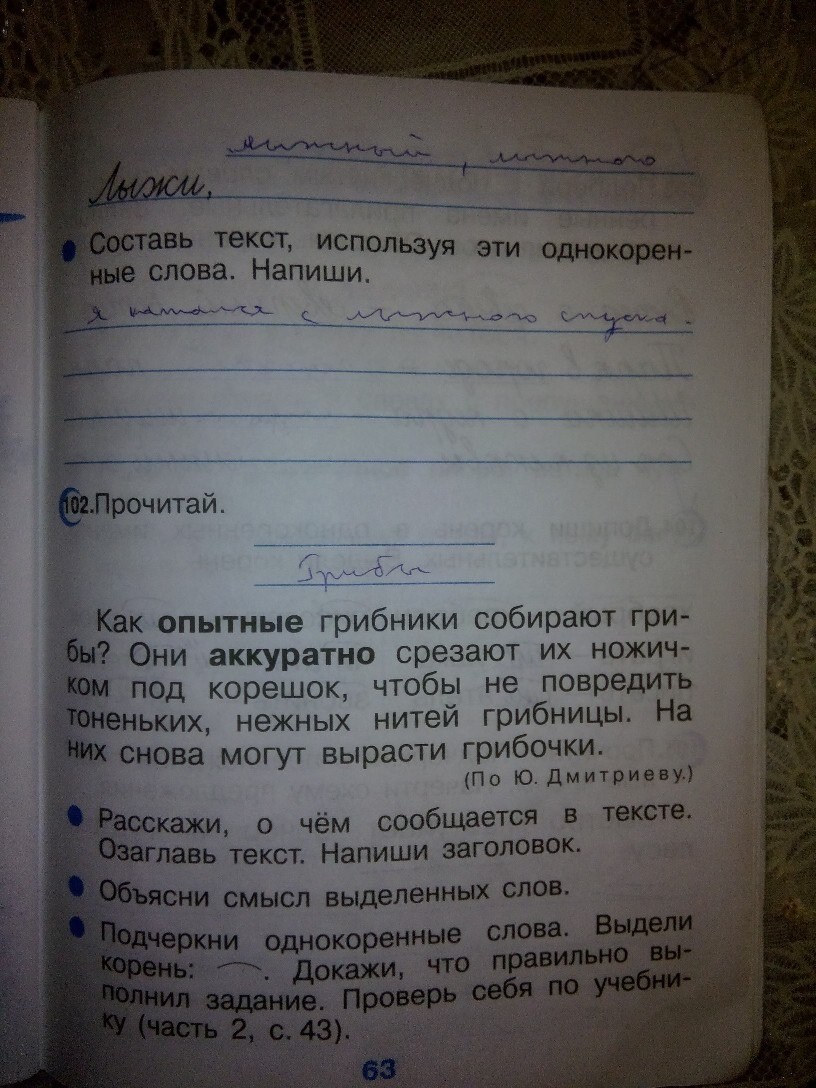 лыжный, лыжного
Лыжи,
Составь текст, используя эти однокорен-
ные слова. Напиши.
я катался с лыжного спуска.
102. Прочитай.
Грибы
Как опытные грибники собирают гри-
бы? Они аккуратно срезают их ножич-
ком под корешок, чтобы не повредить
тоненьких, нежных нитей грибницы. На
них снова могут вырасти грибочки.
(По Ю. Дмитриеву.)
Расскажи, о чём сообщается в тексте.
Озаглавь текст. Напиши заголовок.
Объясни смысл выделенных слов.
Подчеркни однокоренные слова. Выдели
корень: . Докажи, что правильно вы-
полнил задание. Проверь себя по учебни-
ку (часть 2, с. 43).
63